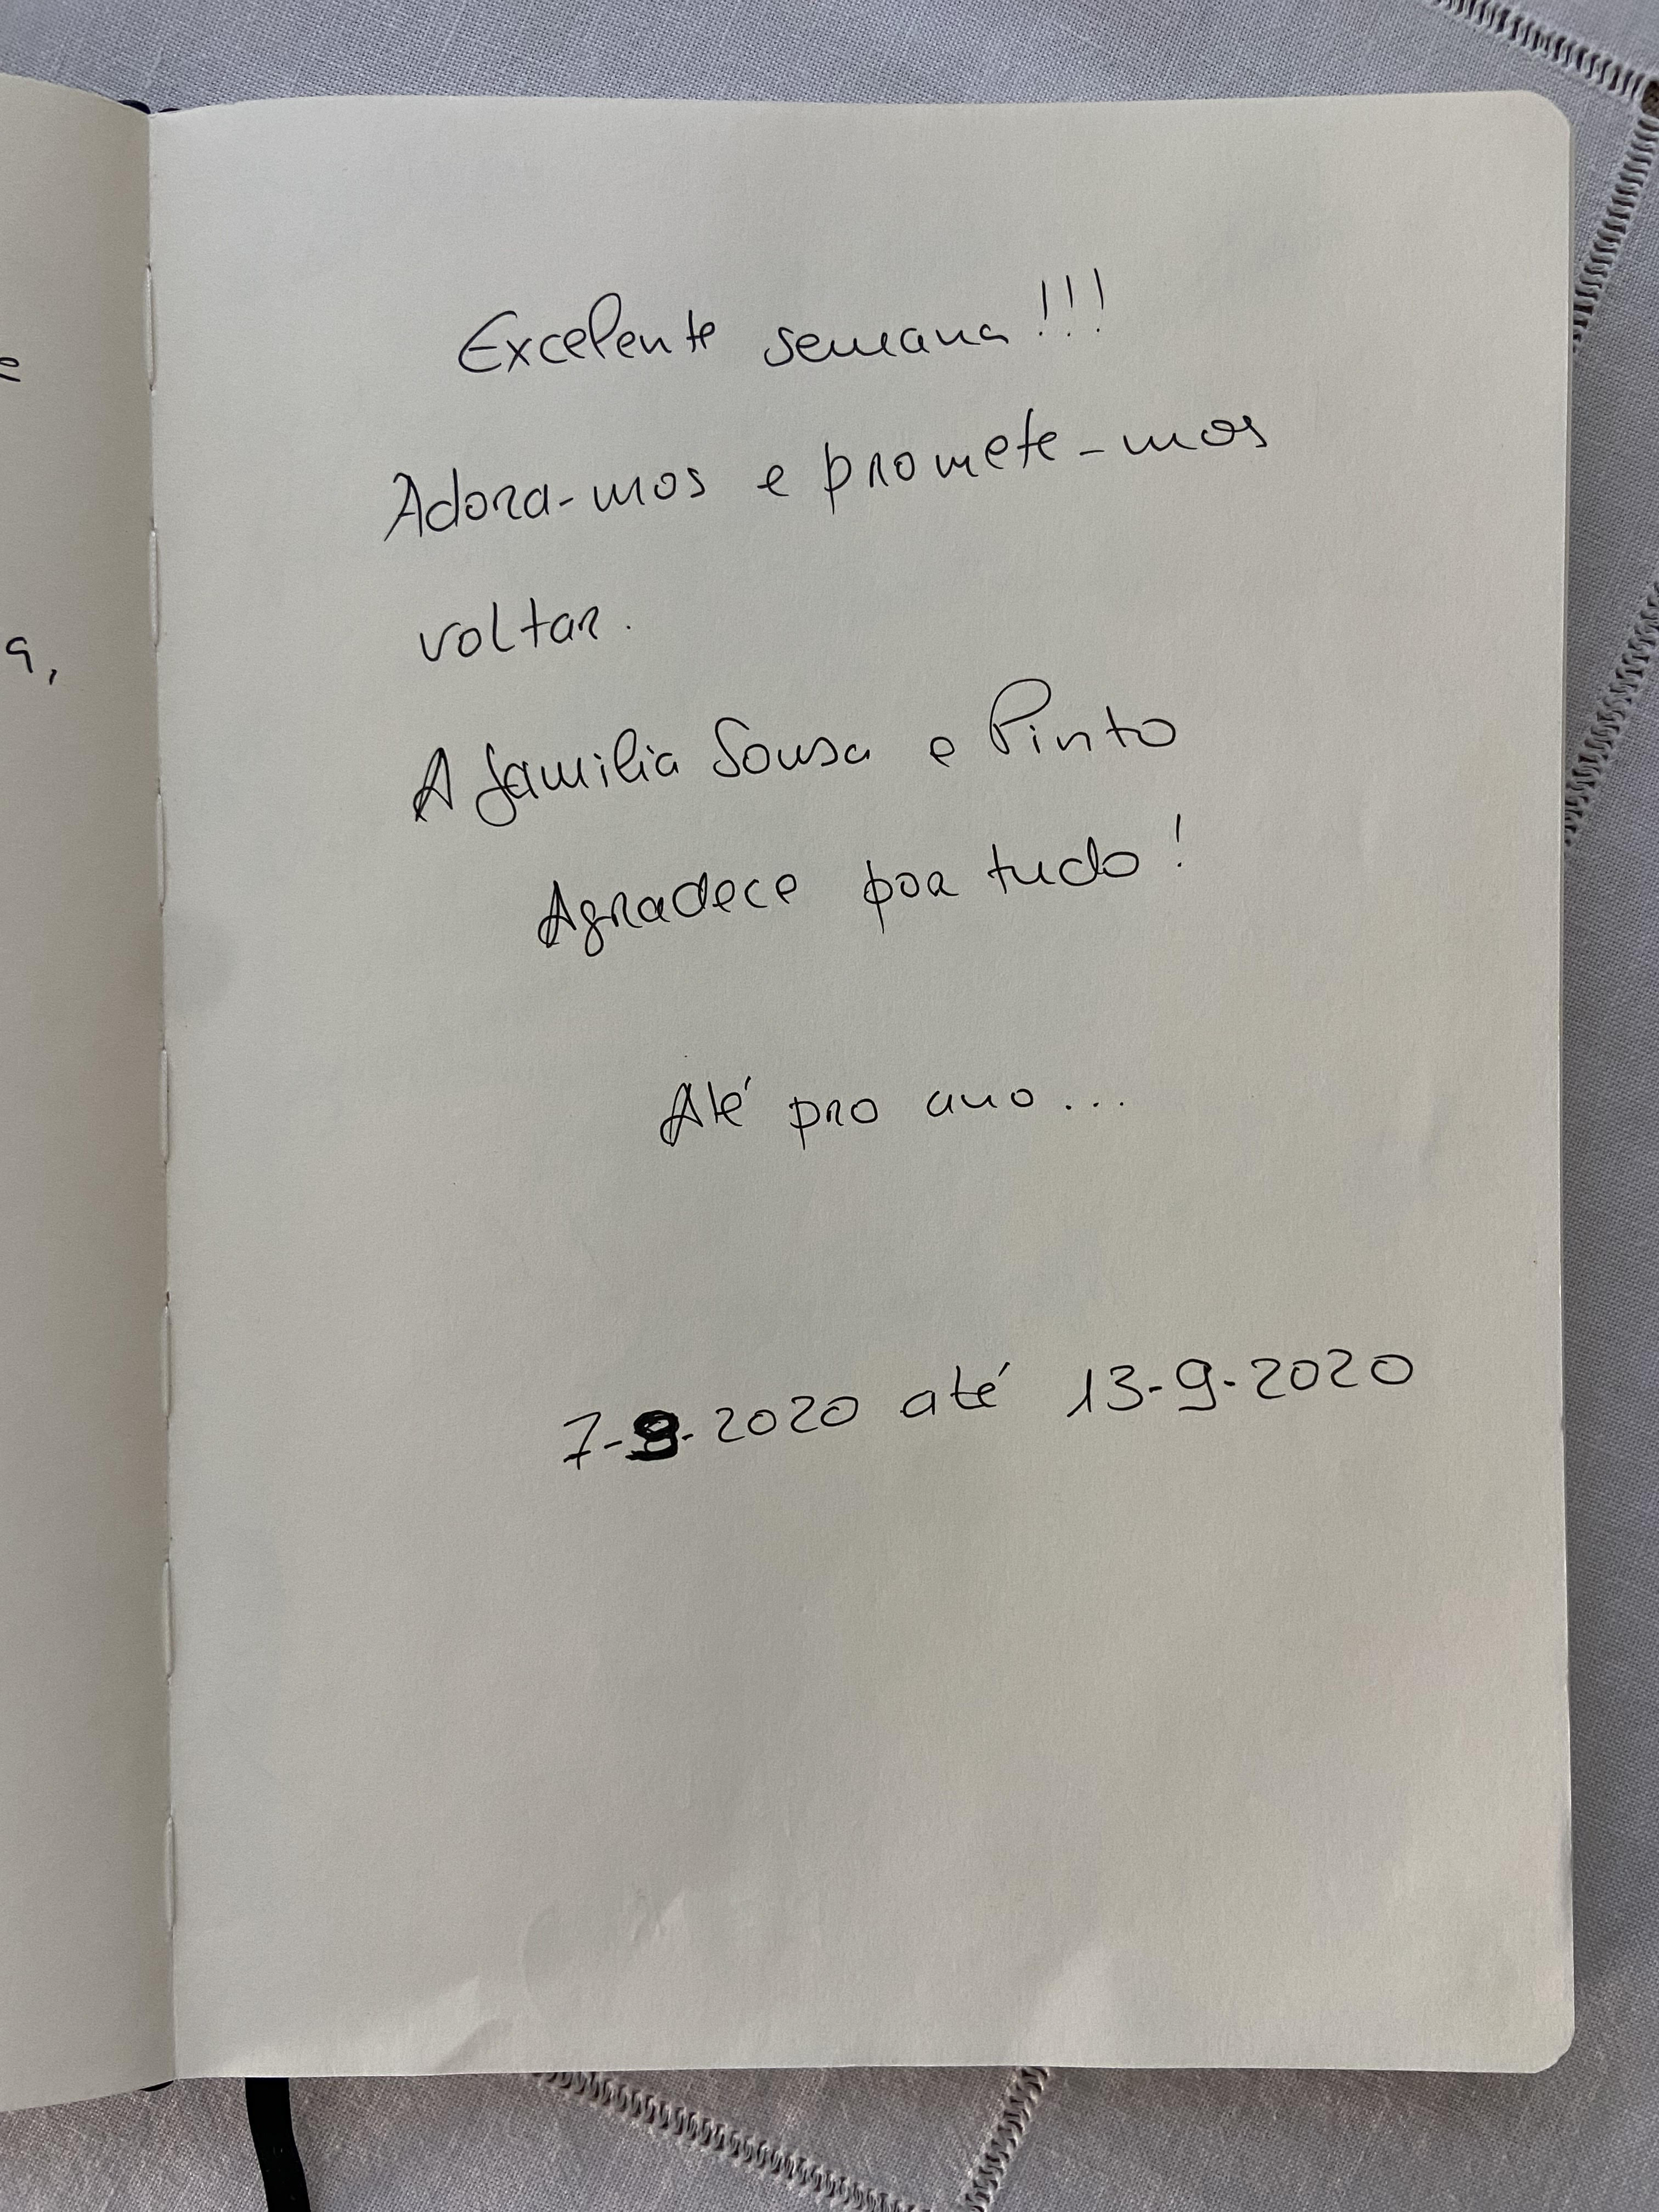 e
a,
Excelente semana!!!
Adora-mos e promete-mos
voltar.
A familia Sousa e Pinto
Agradece por tudo!
Até pro ano...
7-9-2020 até 13-9-2020